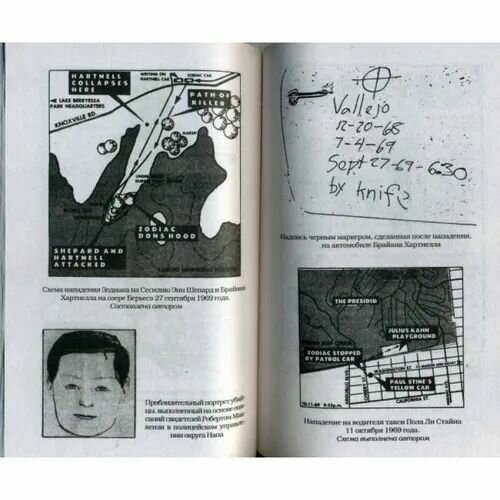 HARTNELL
COLLAPSES
HERE
WRITING ON
HARTNELL CAR
ZODIAC CAR
LAKE BERRYESSA
PARK HEADQUARTERS
PATH OF
KILLER
KNOXVILLE RD.
MARSH
ZODIAC
DONS HOOD
SHEPARD AND
HARTNELL
ATTACKED
Схема нападения Зодиака на Сесилию Энн Шепард и Брайана
Хартнелла на озере Берьеса 27 сентября 1969 года.
Составлена автором
Приблизительный портрет убий-
цы, выполненный на основе опи-
саний свидетелей Робертом Мак-
кензи в полицейском управле-
нии округа Напа
Vallejo
12-20-68
7-4-69
Sept 27-69-6:30
by knife
Надпись черным маркером, сделанная после нападения,
на автомобиле Брайана Хартнелла
THE PRESIDIO
JULIUS KAHN
PLAYGROUND
ZODIAC STOPPED
BY PATROL CAR
WASHINGTON ST.
PAUL STINE'S
YELLOW CAB
CALIFORNIA ST.
Нападение на водителя такси Пола Ли Стайна
11 октября 1969 года.
Схема выполнена автором